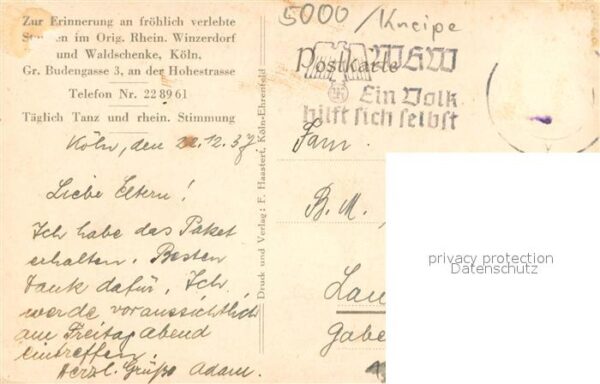 Zur Erinnerung an fröhlich verlebte
Stunden im Orig. Rhein. Winzerdorf
und Waldschenke, Köln,
Gr. Budengasse 3, an der Hohestrasse
Telefon Nr. 22 89 61
Täglich Tanz und rhein. Stimmung
Köln, den 22.12.37.
Liebe Eltern!
Ich habe das Paket
erhalten. Besten
Dank dafür. Ich
werde voraussichtlich
am Freitag abend
eintreffen.
Herzl. Grüße Adam.
Druck und Verlag: F. Haastert, Köln-Ehrenfeld
5000/Kneipe
Postkarte
WHW
Ein Volk
hilft sich selbst
Fam.
B. M.
Lau
Gabe
privacy protection
Datenschutz